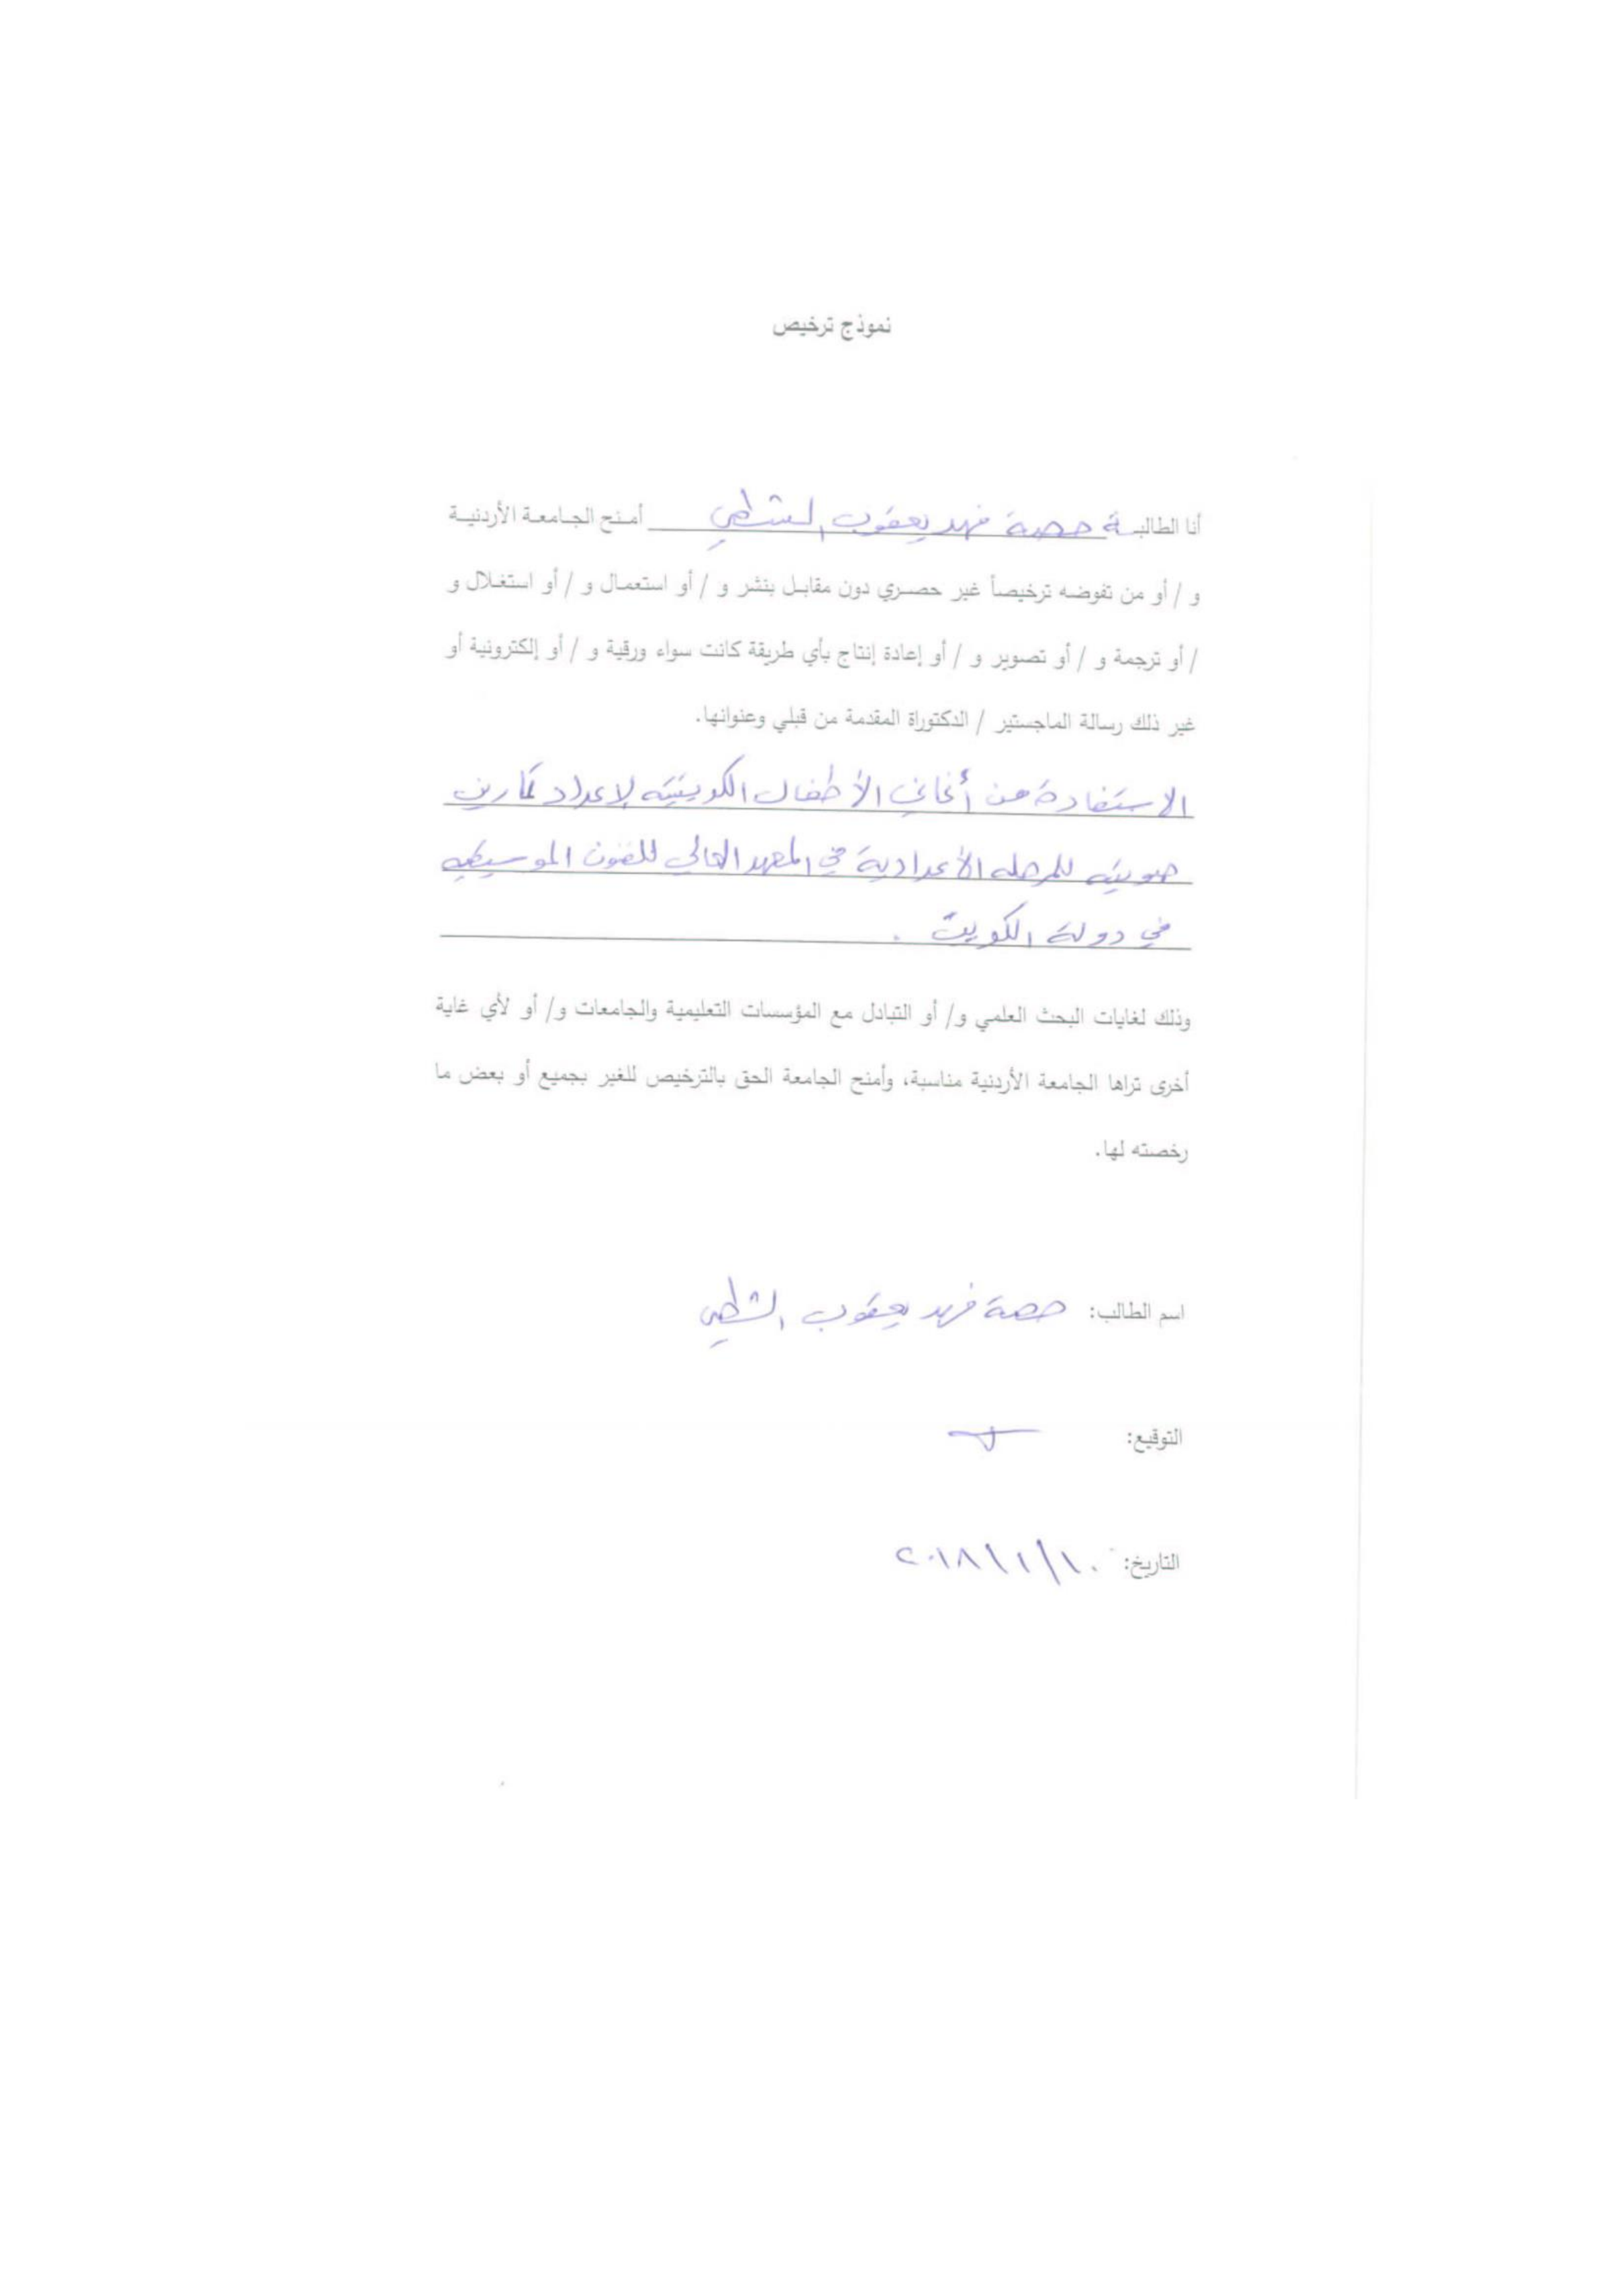 نموذج ترخيص
أنا الطالبة حصة فهد يعقوب الشطي أمنح الجامعة الأردنية
و / أو من تفوضه ترخيصاً غير حصري دون مقابل بنشر و / أو استعمال و / أو استغلال و
/ أو ترجمة و / أو تصوير و / أو إعادة إنتاج بأي طريقة كانت سواء ورقية و / أو إلكترونية أو
غير ذلك رسالة الماجستير / الدكتوراة المقدمة من قبلي وعنوانها.
الاستفادة من أغاني الأطفال الكويتية لإعداد تمارين
صوتية للمرحله الأعدادية في المعهد العالي للفنون الموسيقيه
في دولة الكويت .
وذلك لغايات البحث العلمي و/ أو التبادل مع المؤسسات التعليمية والجامعات و/ أو لأي غاية
أخرى تراها الجامعة الأردنية مناسبة، وأمنح الجامعة الحق بالترخيص للغير بجميع أو بعض ما
رخصته لها.
اسم الطالب: حصة فهد يعقوب الشطي
التوقيع:
التاريخ: ١٠/١/٢٠١٨